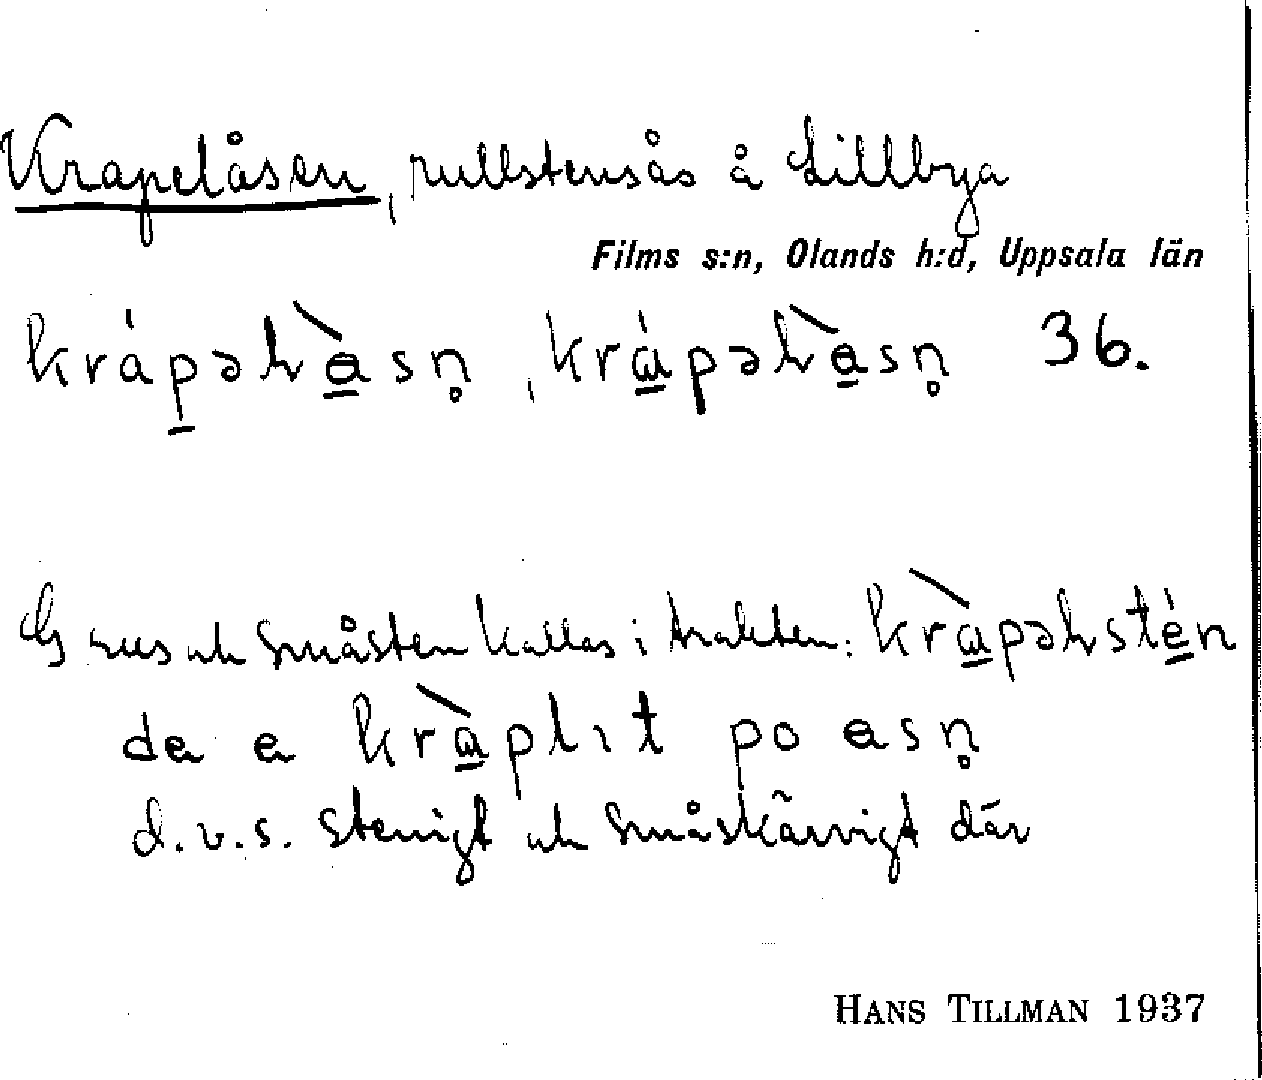 Krapelåsen, rullstensås å Lillbya
Films s:n, Olands h:d, Uppsala län
krápəlàsn̥, krápəlàsn̥ 36.
Grus och småsten kallas i trakten: kràpəlstén
dɐ ɐ kràplıt po ɐsn̥
d.v.s. stenigt och småskärvigt där
HANS TILLMAN 1937